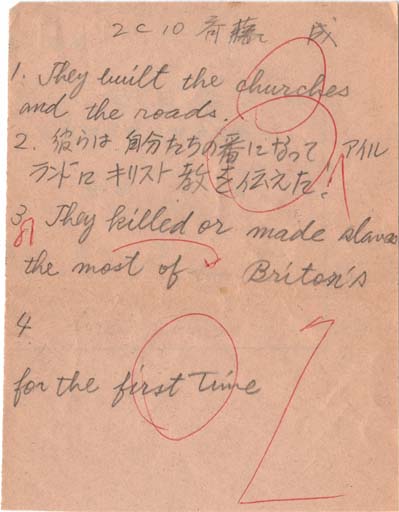 2C10 斉藤 成
1. They built the churches
and the roads.
2. 彼らは 自分たちの番になって アイル
ランドにキリスト教を伝えた!
3. They killed or made slaves
the most of Briton's
4.
for the first time